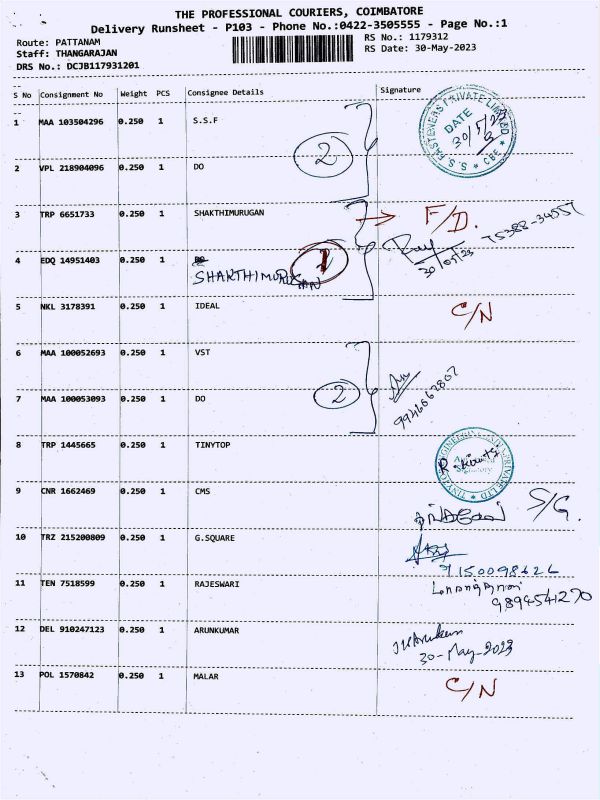 THE PROFESSIONAL COURIERS, COIMBATORE
Delivery Runsheet - P103 - Phone No.:0422-3505555 - Page No.:1
Route: PATTANAM
Staff: THANGARAJAN
DRS No.: DCJB117931201
RS No.: 1179312
RS Date: 30-May-2023
S No Consignment No Weight PCS Consignee Details Signature
1 MAA 103504296 0.250 1 S.S.F
S.S. FASTENERS PRIVATE LIMITED * CBE *
DATE
30/5/23
2
2 VPL 218904096 0.250 1 DO
3 TRP 6651733 0.250 1 SHAKTHIMURUGAN F/D.
75388-34557
4 EDQ 14951403 0.250 1 DO
SHAKTHIMURUGAN
1
30/05/23
5 NKL 3178391 0.250 1 IDEAL C/N
6 MAA 100052693 0.250 1 VST
2
7 MAA 100053093 0.250 1 DO
9946662807
8 TRP 1445665 0.250 1 TINYTOP
9 CNR 1662469 0.250 1 CMS S/G.
10 TRZ 215200809 0.250 1 G.SQUARE
9150098626
11 TEN 7518599 0.250 1 RAJESWARI
9894541270
12 DEL 910247123 0.250 1 ARUNKUMAR
30-May-2023
13 POL 1570842 0.250 1 MALAR C/N